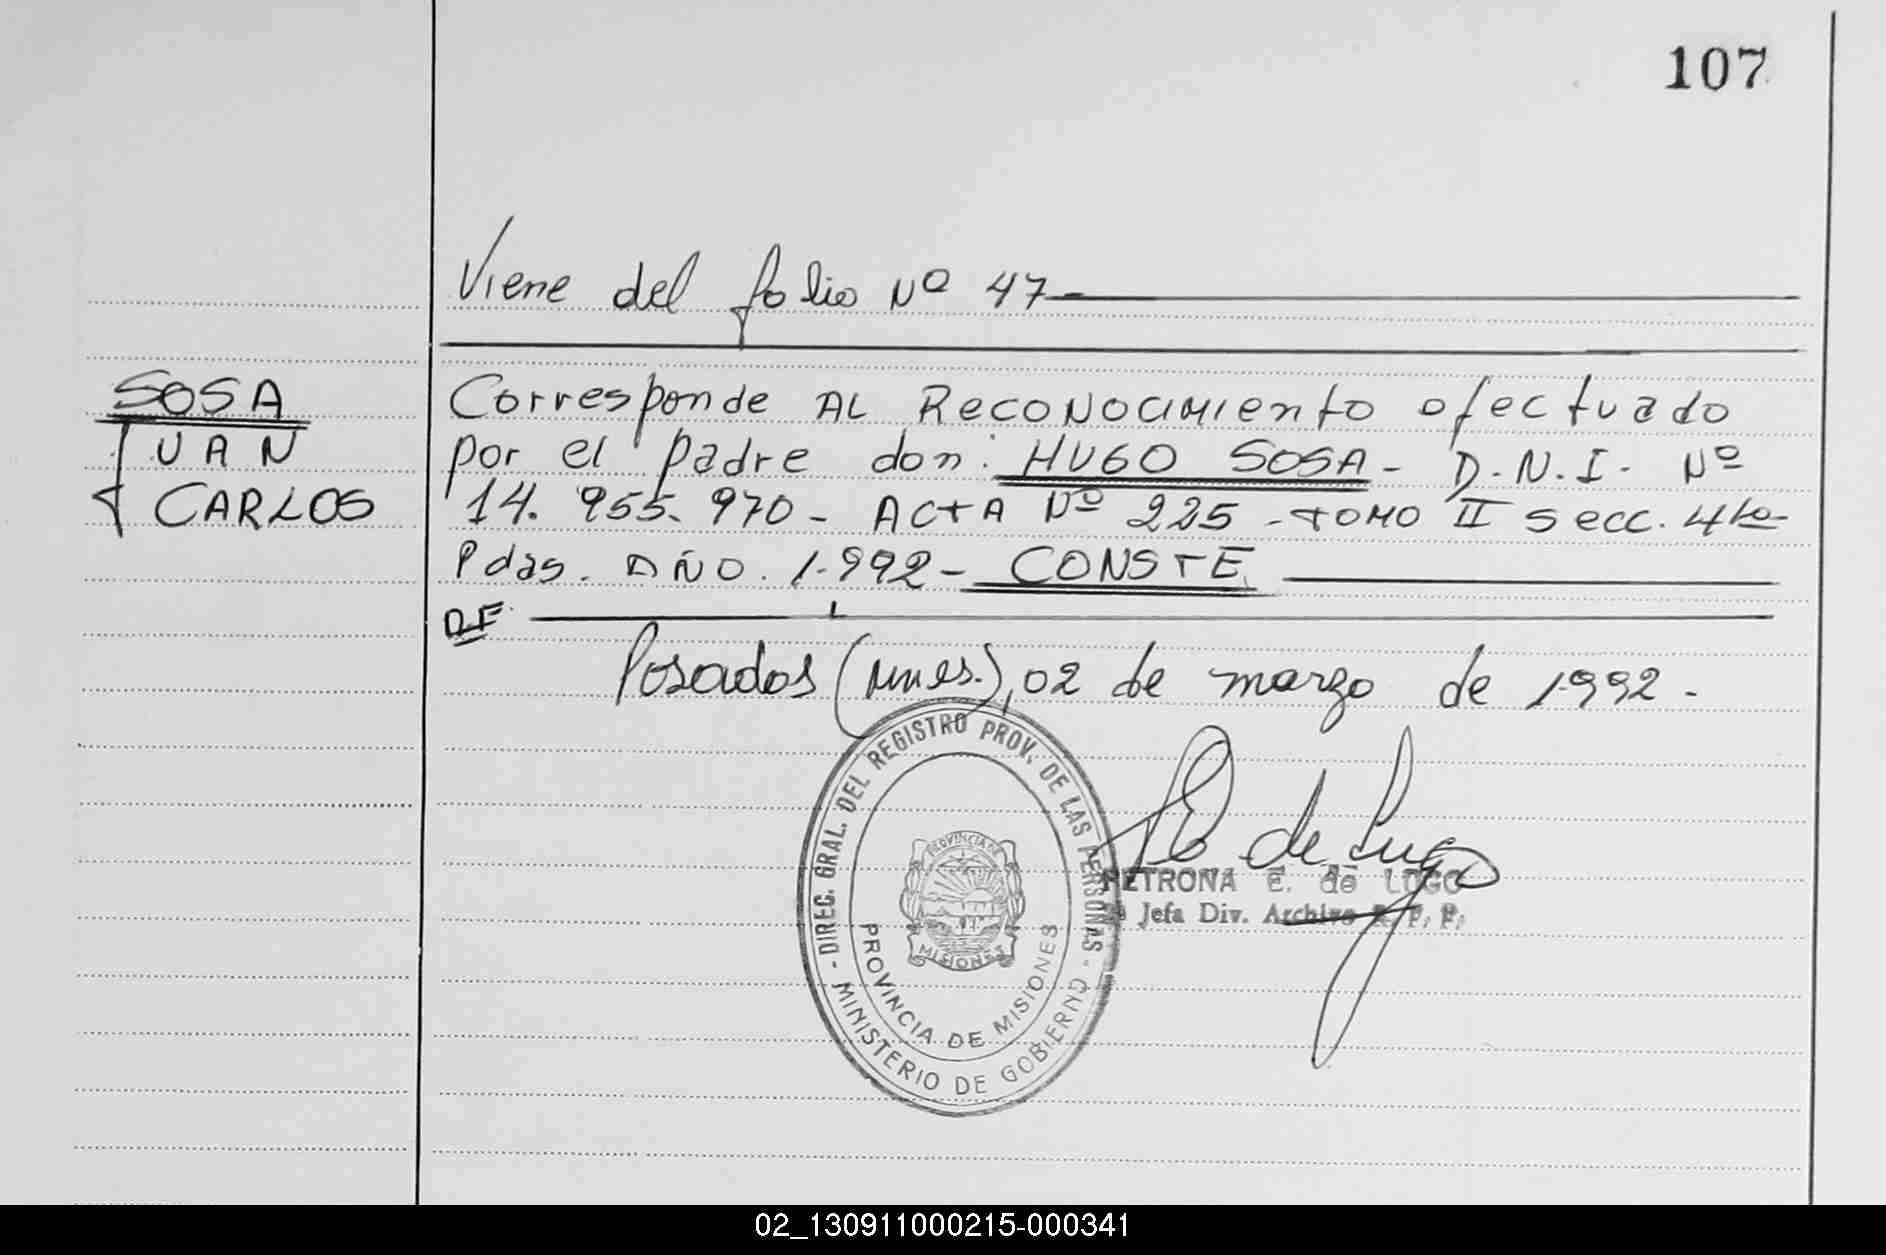 107
Viene del folio Nº 47
SOSA
JUAN
CARLOS
Corresponde AL Reconocimiento efectuado
por el padre don: HUGO SOSA - D.N.I. Nº
14.955.970 - ACTA Nº 225 - TOMO II secc. 4ta
Pdas. AÑO. 1.992 - CONSTE
Posadas (Mnes.), 02 de marzo de 1.992 -
- DIREC. GRAL. DEL REGISTRO PROV. DE LAS PERSONAS -
MINISTERIO DE GOBIERNO
PROVINCIA DE
MISIONES
PROVINCIA DE MISIONES
PE de Lugo
PETRONA E. de LUGO
Jefa Div. Archivo R. P. P.
02_130911000215-000341